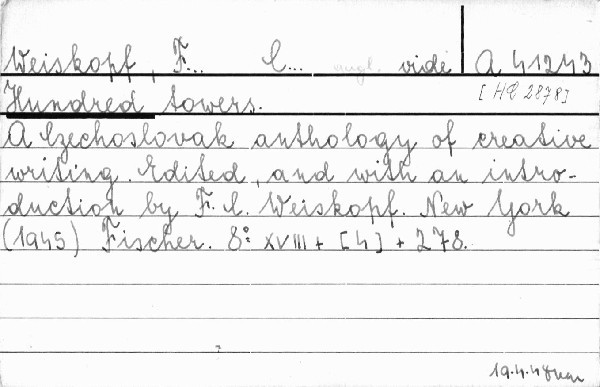 Weiskopf, F... C... angl. vide A 41243
Hundred towers. [HE 2878]
A Czechoslovak anthology of creative
writing. Edited, and with an intro-
duction by F. C. Weiskopf. New York
(1945) Fischer. 8° XVIII + [4] + 278.
19.4.48